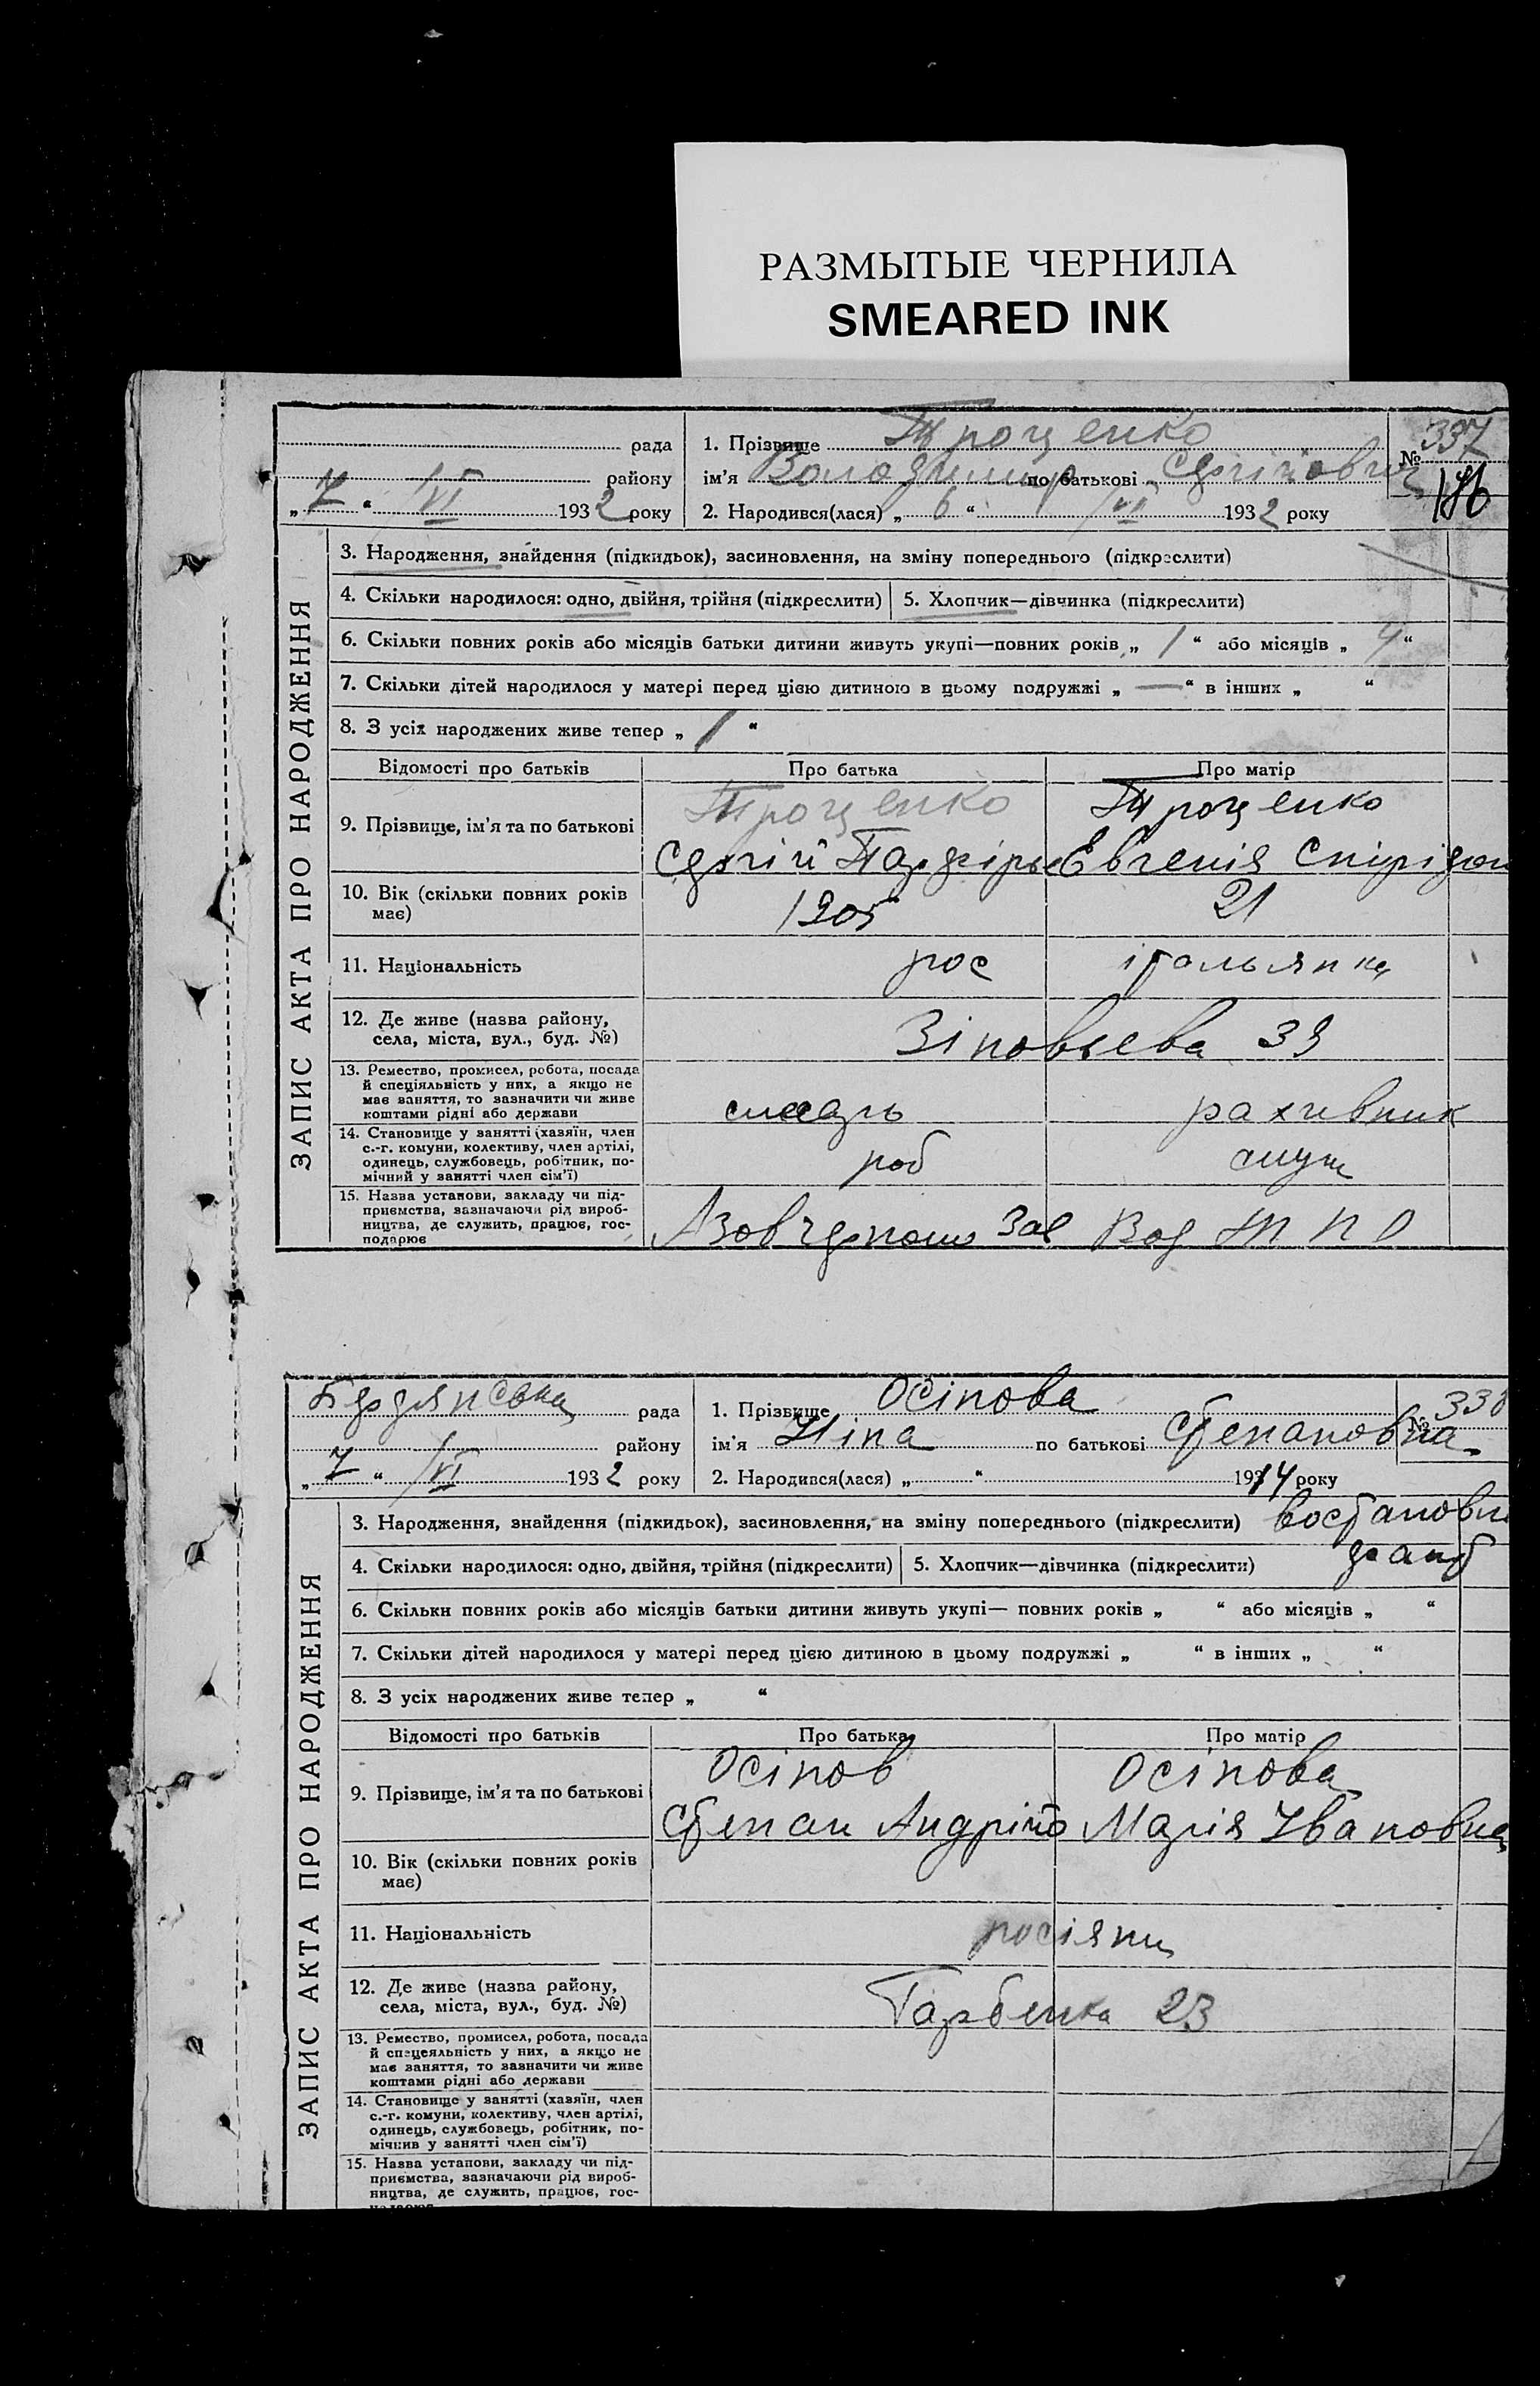 РАЗМЫТЫЕ ЧЕРНИЛА
SMEARED INK
рада
району
„ 7 “ /VI 1932 року
1. Прізвище Троценко
ім'я Володимир по батькові Сергійович
2. Народився(лася) „ 6 “ /VI 1932 року
№ 337
ЗАПИС АКТА ПРО НАРОДЖЕННЯ
3. Народження, знайдення (підкидьок), засиновлення, на зміну попереднього (підкреслити)
4. Скільки народилося: одно, двійня, трійня (підкреслити)
5. Хлопчик—дівчинка (підкреслити)
6. Скільки повних років або місяців батьки дитини живуть укупі—повних років „ 1 “ або місяців „ 4 “
7. Скільки дітей народилося у матері перед цією дитиною в цьому подружжі „ — “ в інших „ “
8. З усіх народжених живе тепер „ 1 “
Відомості про батьків
Про батька
Про матір
9. Прізвище, ім'я та по батькові
Троценко
Сергій
Троценко
Евгенія Спірідон
10. Вік (скільки повних років
має)
1905
21
11. Національність
рос
італьянка
12. Де живе (назва району,
села, міста, вул., буд. №)
Зіновьева 39
13. Ремество, промисел, робота, посада
й спеціяльність у них, а якщо не
має заняття, то зазначити чи живе
коштами рідні або держави
рахивник
14. Становище у занятті (хазяїн, член
с.-г. комуни, колективу, член артілі,
одинець, службовець, робітник, по-
мічний у занятті член сім'ї)
роб
служ
15. Назва установи, закладу чи під-
приємства, зазначаючи рід вироб-
ництва, де служить, працює, гос-
подарює
Зав
Т П О
Бердянська рада
району
„ 7 “ /VI 1932 року
1. Прізвище Осіпова
ім'я Ніна по батькові Степановна
2. Народився(лася) „ “ 1914 року
№ 338
ЗАПИС АКТА ПРО НАРОДЖЕННЯ
3. Народження, знайдення (підкидьок), засиновлення, на зміну попереднього (підкреслити) востановле
4. Скільки народилося: одно, двійня, трійня (підкреслити)
5. Хлопчик—дівчинка (підкреслити)
6. Скільки повних років або місяців батьки дитини живуть укупі— повних років „ “ або місяців „ “
7. Скільки дітей народилося у матері перед цією дитиною в цьому подружжі „ “ в інших „ “
8. З усіх народжених живе тепер „ “
Відомості про батьків
Про батька
Про матір
9. Прізвище, ім'я та по батькові
Осіпов
Степан
Осіпова
Марія Івановна
10. Вік (скільки повних років
має)
11. Національність
росіяни
12. Де живе (назва району,
села, міста, вул., буд. №)
23
13. Ремество, промисел, робота, посада
й спецеяльність у них, а якщо не
має заняття, то зазначити чи живе
коштами рідні або держави
14. Становище у занятті (хазяїн, член
с.-г. комуни, колективу, член артілі,
одинець, службовець, робітник, по-
мічнив у занятті член сім'ї)
15. Назва установи, закладу чи під-
приємства, зазначаючи рід вироб-
ництва, де служить, працює, гос-